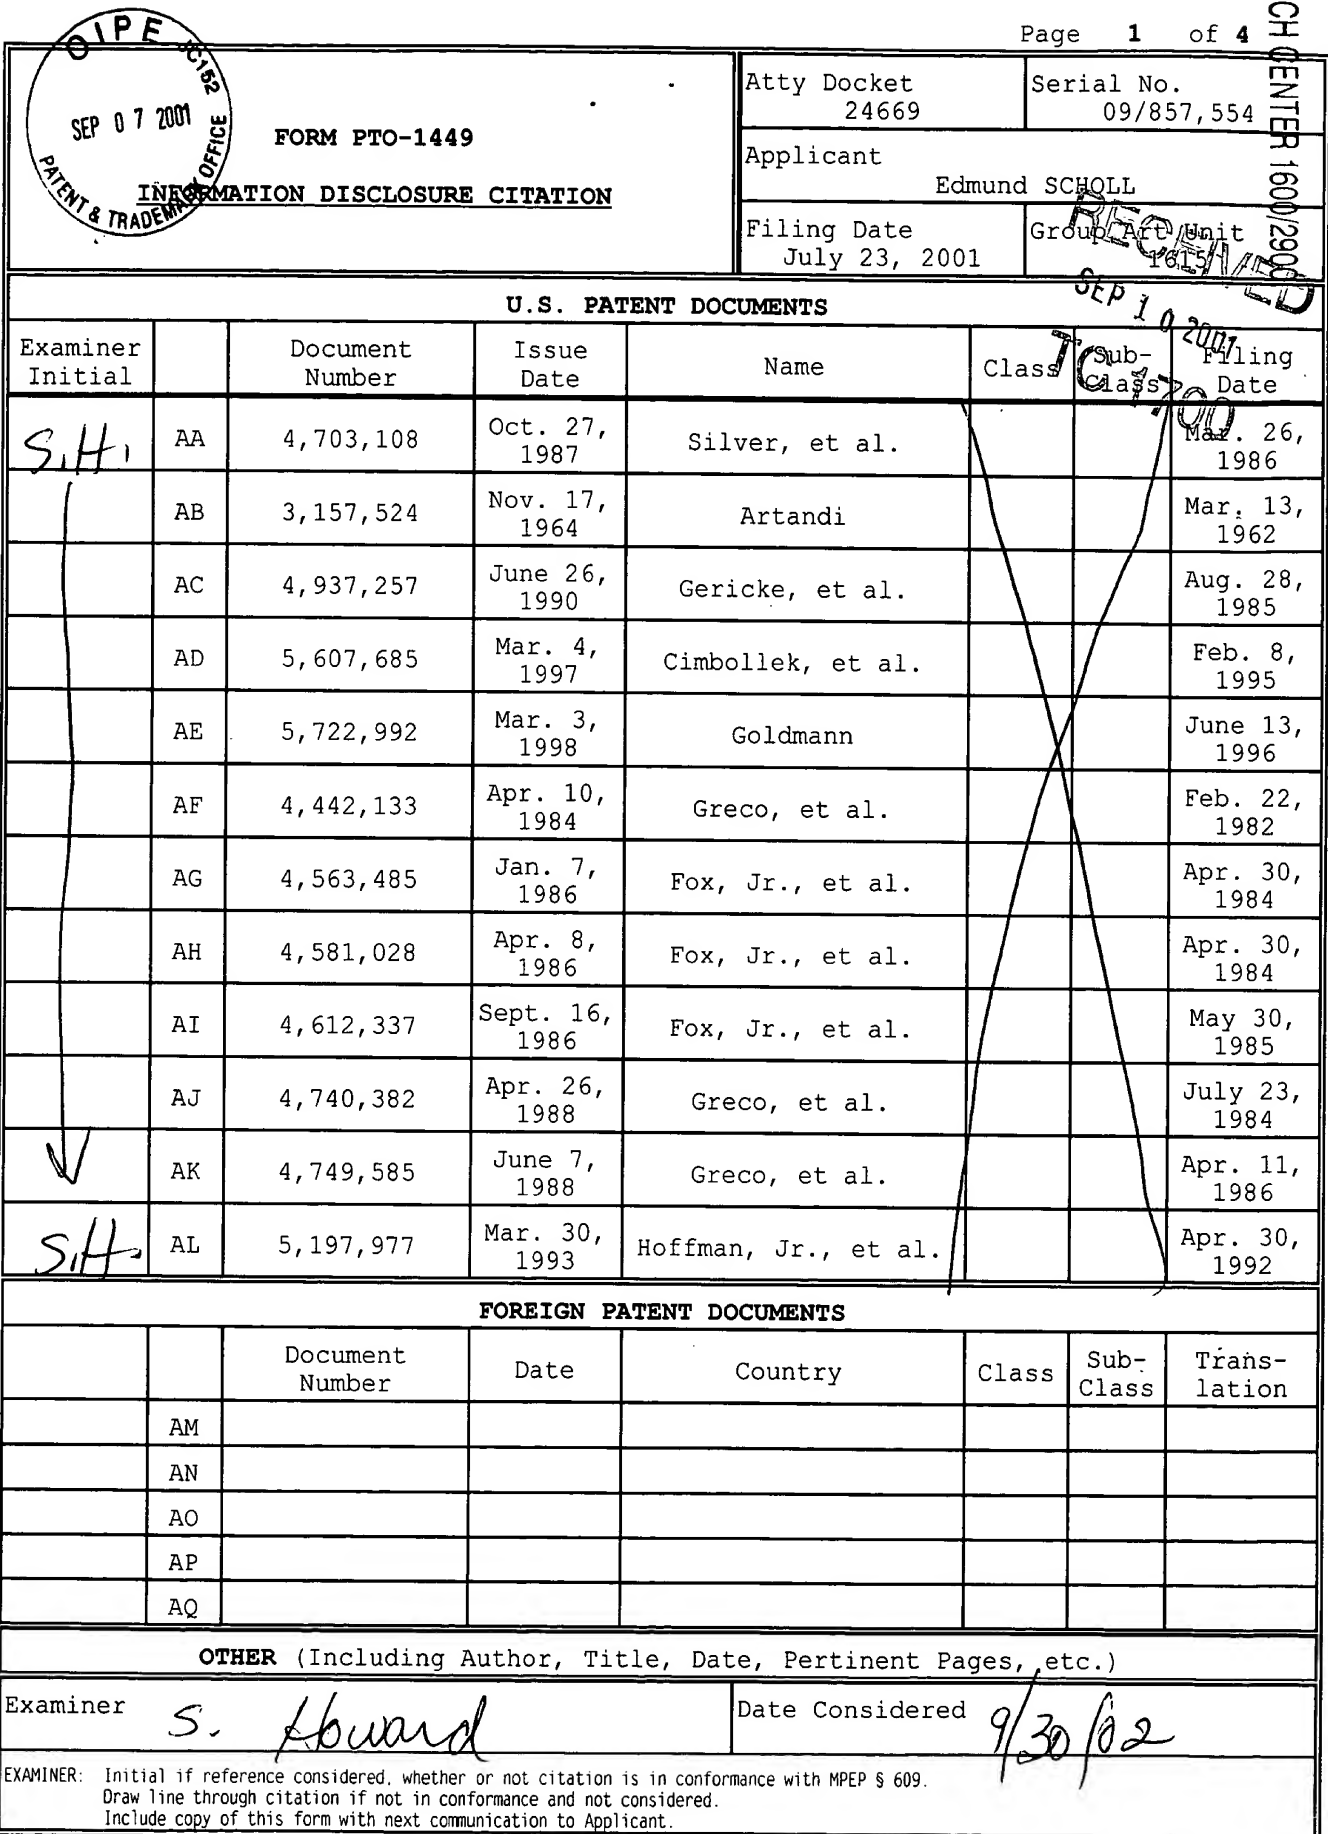 Page 1 of 4
OIPE JC152
SEP 07 2001
PATENT & TRADEMARK OFFICE
FORM PTO-1449
INFORMATION DISCLOSURE CITATION
Atty Docket
24669
Serial No.
09/857,554
Applicant
Edmund SCHOLL
Filing Date
July 23, 2001
Group Art Unit
1615
CH CENTER 1600/2900
RECEIVED
SEP 10 2001
TC 1700
U.S. PATENT DOCUMENTS
Examiner Initial Document Number Issue Date Name Class Sub-Class Filing Date
S.H. AA 4,703,108 Oct. 27, 1987 Silver, et al. Mar. 26, 1986
AB 3,157,524 Nov. 17, 1964 Artandi Mar. 13, 1962
AC 4,937,257 June 26, 1990 Gericke, et al. Aug. 28, 1985
AD 5,607,685 Mar. 4, 1997 Cimbollek, et al. Feb. 8, 1995
AE 5,722,992 Mar. 3, 1998 Goldmann June 13, 1996
AF 4,442,133 Apr. 10, 1984 Greco, et al. Feb. 22, 1982
AG 4,563,485 Jan. 7, 1986 Fox, Jr., et al. Apr. 30, 1984
AH 4,581,028 Apr. 8, 1986 Fox, Jr., et al. Apr. 30, 1984
AI 4,612,337 Sept. 16, 1986 Fox, Jr., et al. May 30, 1985
AJ 4,740,382 Apr. 26, 1988 Greco, et al. July 23, 1984
AK 4,749,585 June 7, 1988 Greco, et al. Apr. 11, 1986
S.H. AL 5,197,977 Mar. 30, 1993 Hoffman, Jr., et al. Apr. 30, 1992
FOREIGN PATENT DOCUMENTS
Document Number Date Country Class Sub-Class Trans-lation
AM
AN
AO
AP
AQ
OTHER (Including Author, Title, Date, Pertinent Pages, etc.)
Examiner S. Howard Date Considered 9/30/02
EXAMINER: Initial if reference considered, whether or not citation is in conformance with MPEP § 609.
Draw line through citation if not in conformance and not considered.
Include copy of this form with next communication to Applicant.